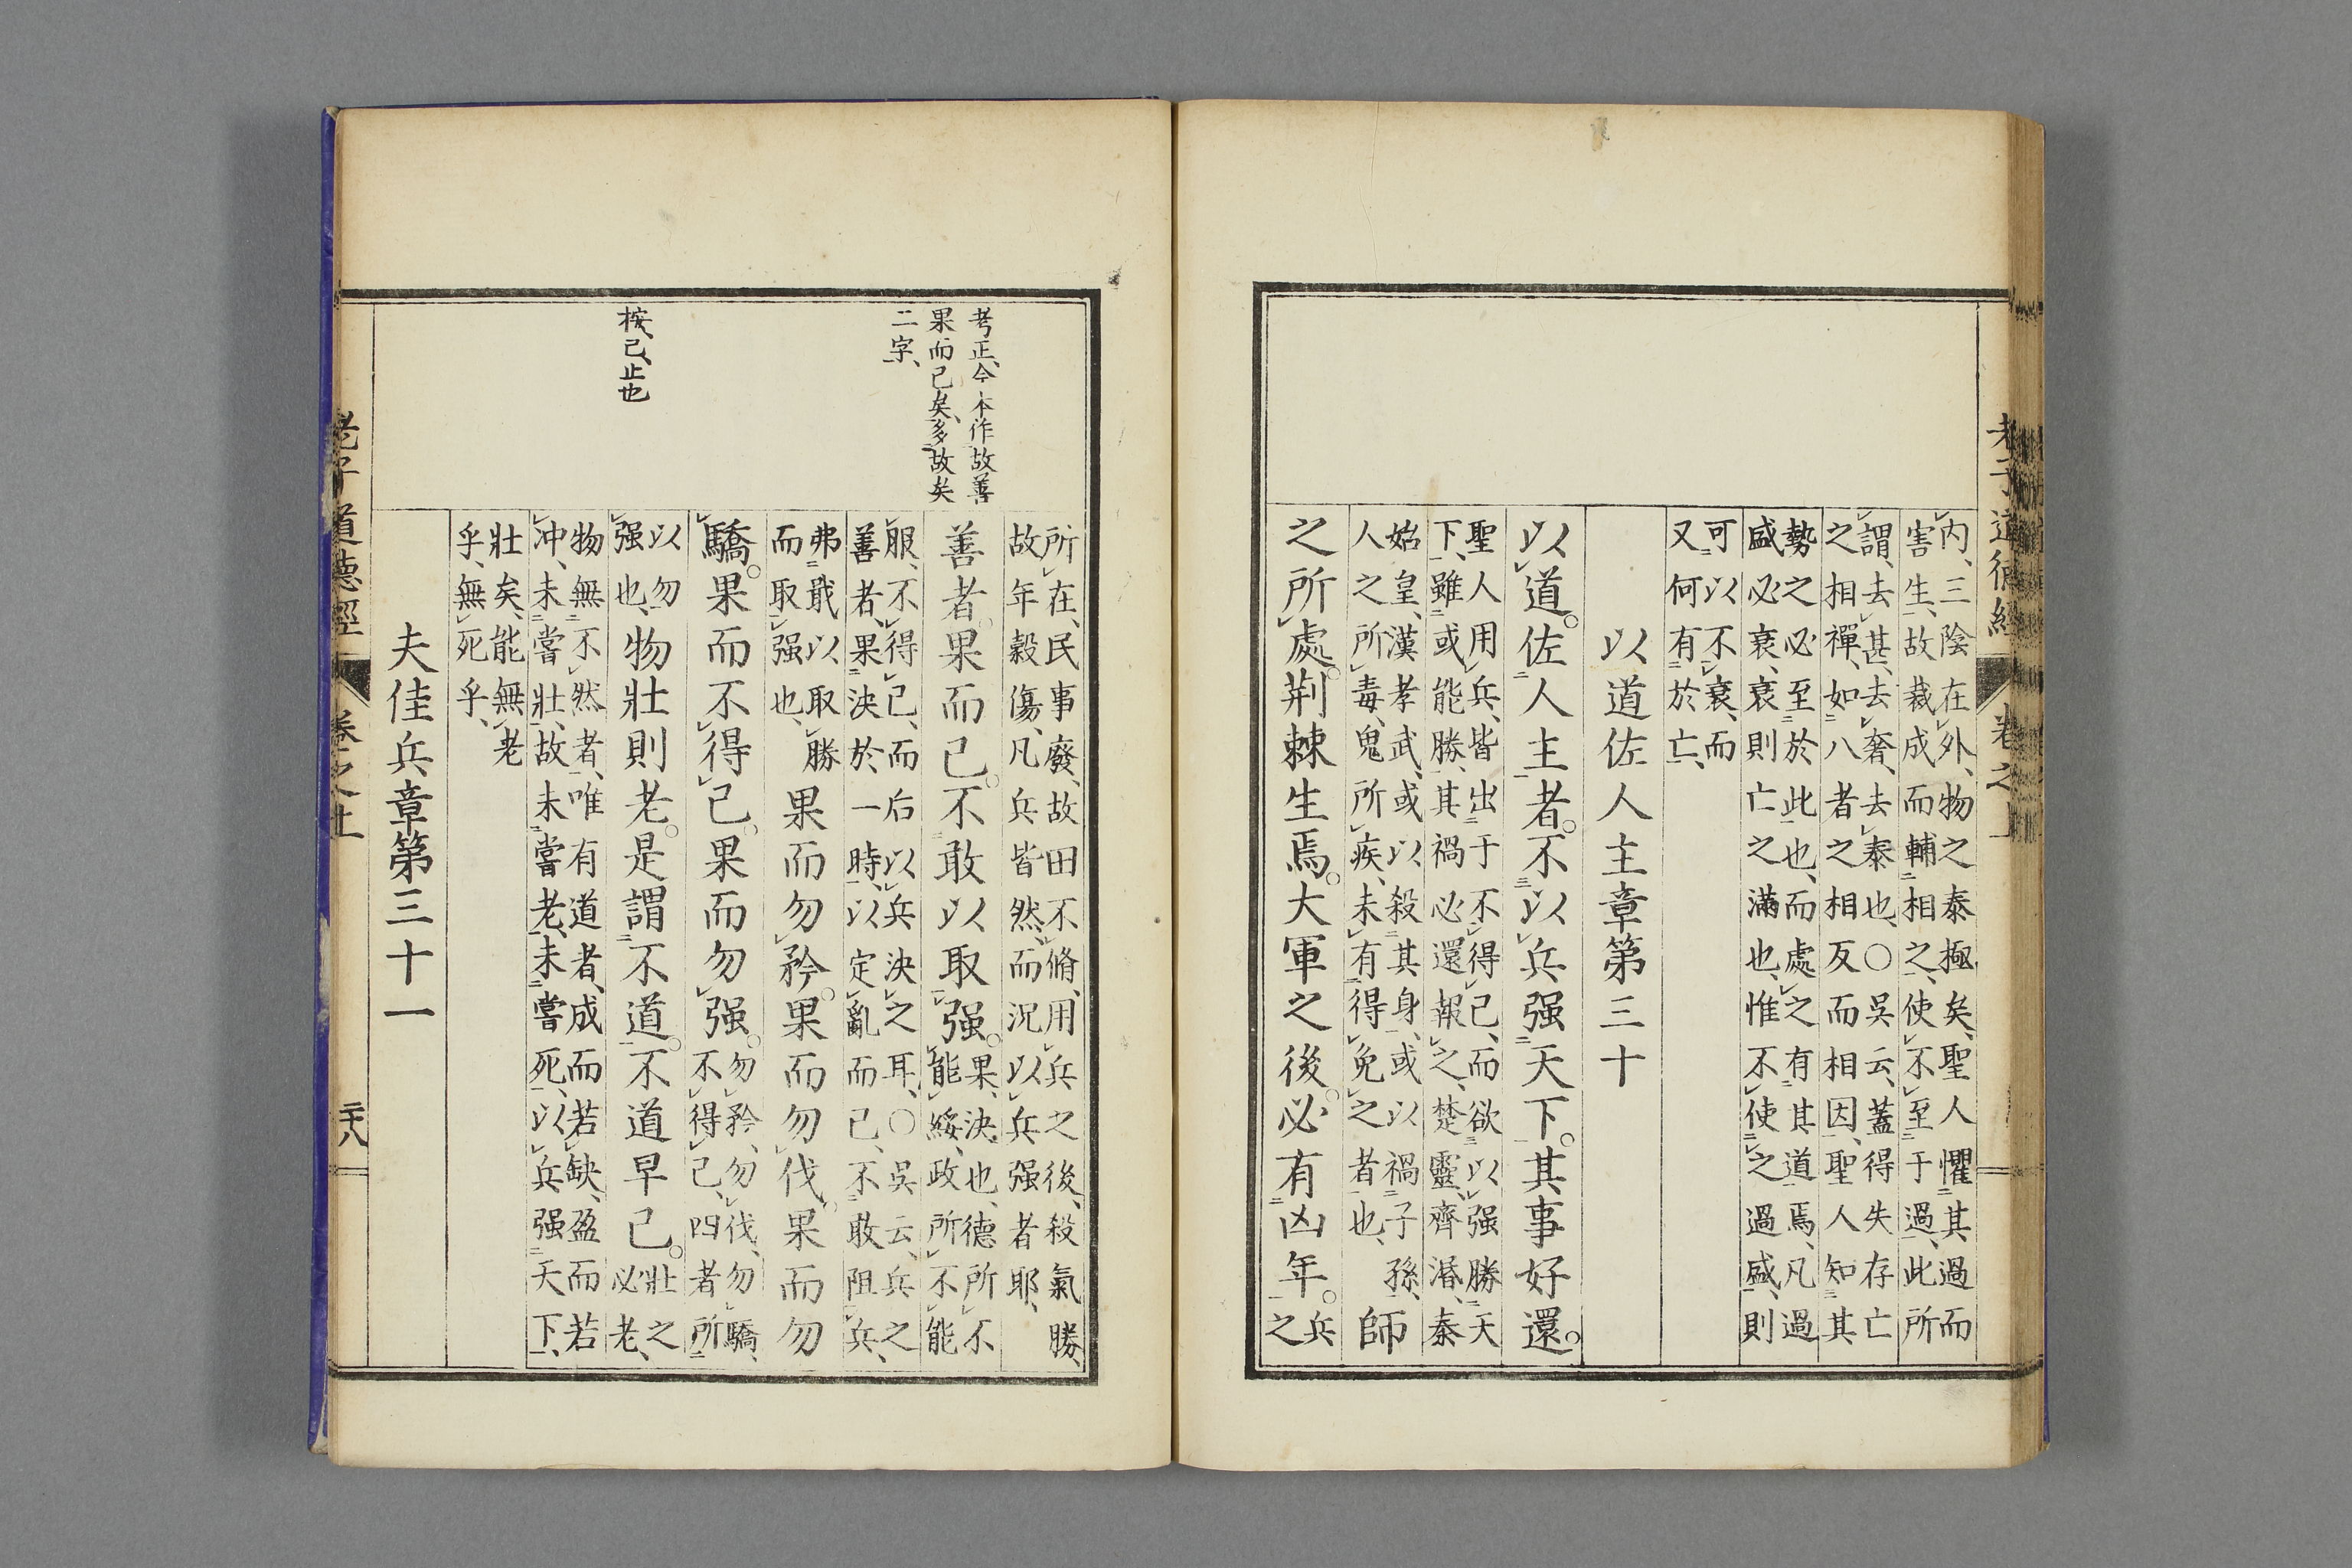 內、三陰在外、物之泰極矣、聖人懼其過而
害生、故裁成而輔相之、使不至于過、此所
謂去甚、去奢、去泰也、○吳云、蓋得失存亡
之相禪、如八者之相反而相因、聖人知其
勢之必至於此也、而處之有其道焉、凡過
盛必衰、衰則亡之滿也、惟不使之過盛、則
可以不衰、而
又何有於亡、
以道佐人主章第三十
以道。佐人主者。不以兵强天下。其事好還。
聖人用兵、皆出于不得已、而欲以强勝天
下、雖或能勝、其禍必還報之、楚靈、齊湣、秦
始皇、漢孝武、或以殺其身、或以禍子孫、
人之所毒、鬼所疾、未有得免之者也、
師
之所處。荊棘生焉。大軍之後。必有凶年。
兵
之
所在、民事廢、故田不脩、用兵之後、殺氣勝、
故年穀傷、凡兵皆然、而況以兵强者耶、
善者。果而已。不敢以取强。
果、決也、德所不
能綏、政所不能
服、不得已、而后以兵決之耳、○吳云、兵之
善者、果決於一時、以定亂而已、不敢阻兵、
弗戢以取勝
而取强也、
果而勿矜。果而勿伐。果而勿
驕。果而不得已。果而勿强。
勿矜、勿伐、勿驕、
不得已、四者所
以勿
强也、
物壯則老。是謂不道。不道早已。
壯之
必老、
物無不然者、唯有道者、成而若缺、盈而若
冲、未嘗壯、故未嘗老、未嘗死、以兵强天下、
壯矣、能無老
乎、無死乎、
夫佳兵章第三十一
考正、今本作故善
果而已矣、多故矣
二字、
桉、已、止也
老子道德經 卷之上 二十八